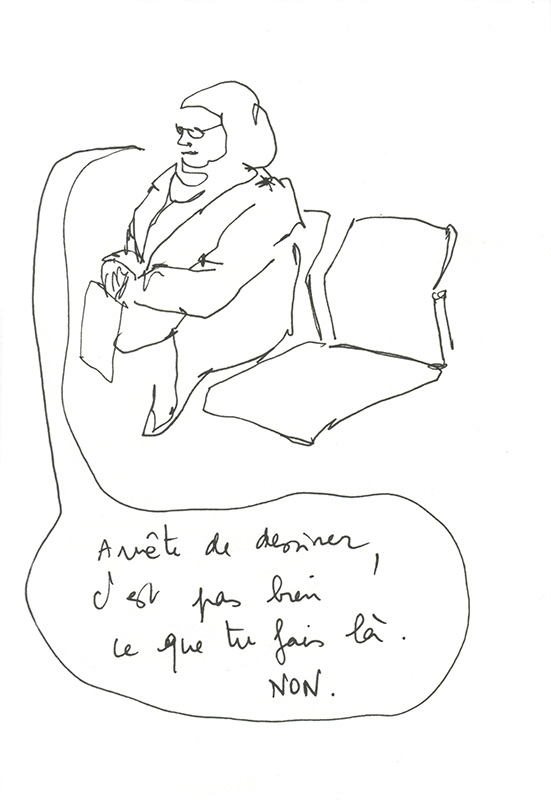 Arrête de dessiner,
c'est pas bien
ce que tu fais là.
NON.